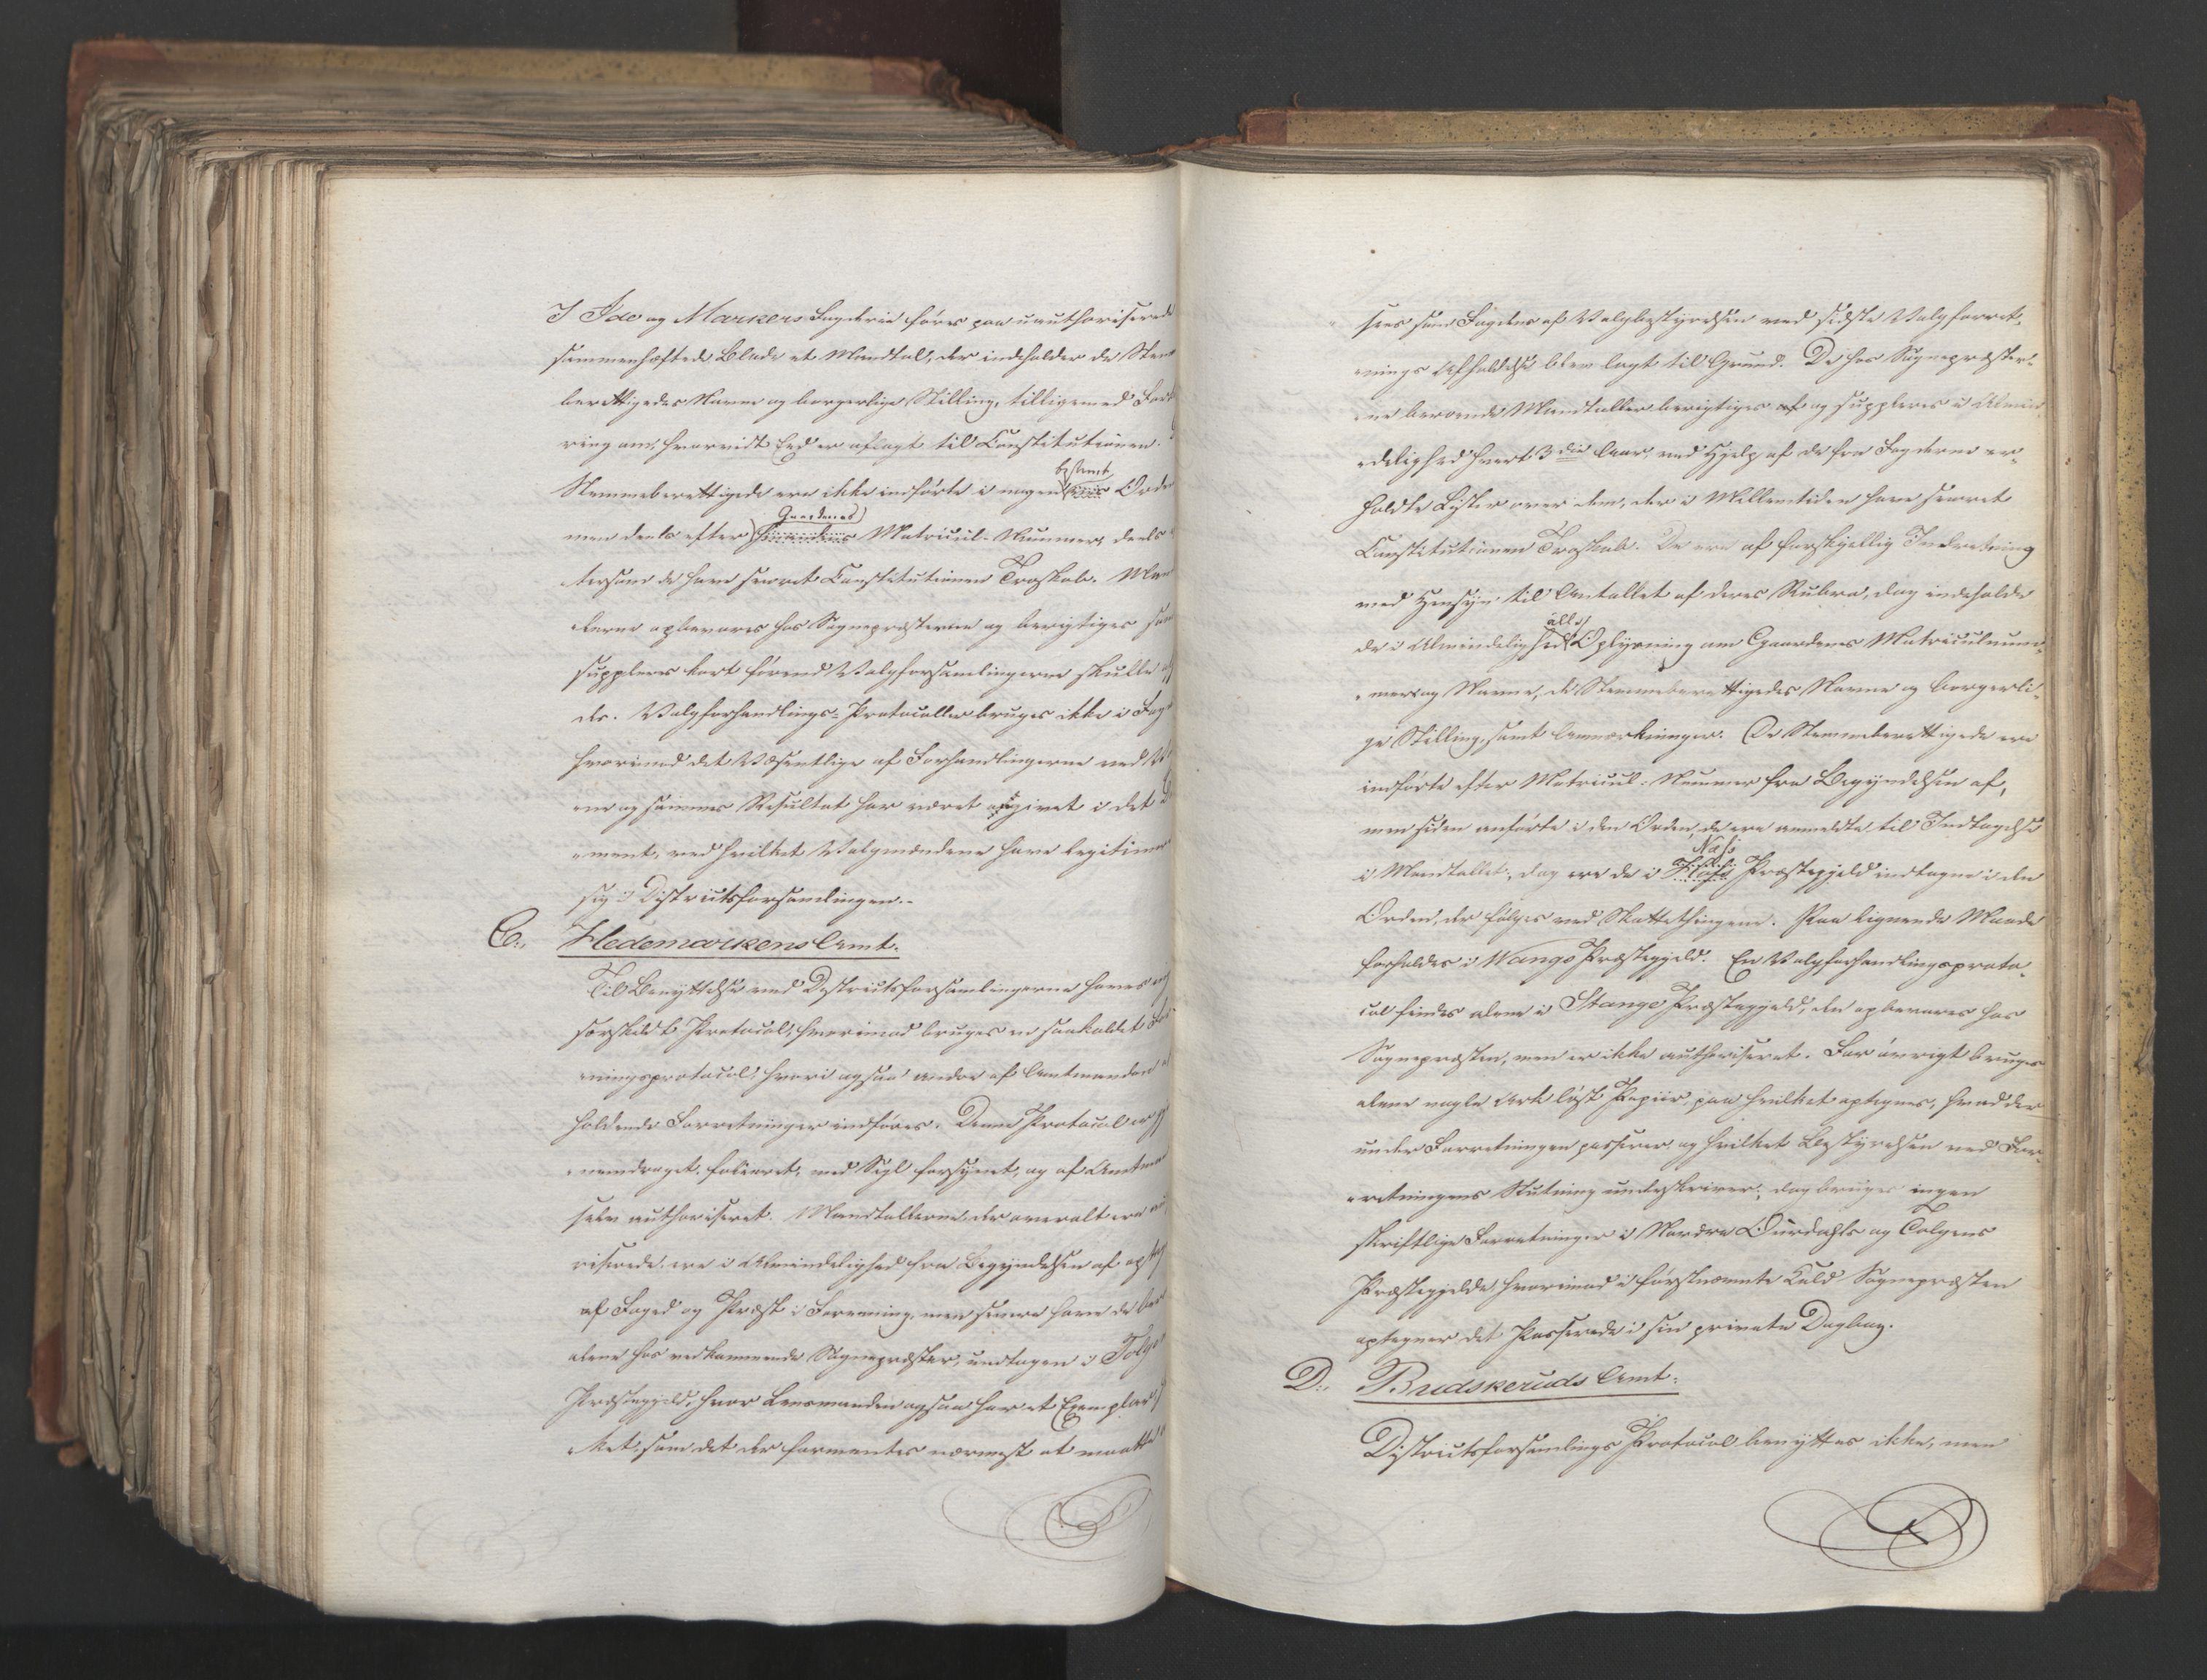 I Ide og Markers Fogderie føres paa uauthoriserede
sammenhæftede Blade et Mandtal, der indeholder de Stem
berettigedes Navne og borgerlige Stilling, tilligemed Forkl
ring om, hvorvidt Eed er aflagt til Constitutionen.
bestemt
Stemmeberettigede ere ikke indførte i nogen Orden
Gaardenes
men deels efter Matricul-Nummer, deels
tersom de have svoret Constitutionen Troskab. Man
lerne opbevares hos Sognepræsterne og berigtiges sam
suppleres kort førend Valgforsamlingerne skulle
des. Valgforhandlings-Protocoller bruges ikke i Fogd
hvorimod det Væsentlige af Forhandlingerne ved Va
ene og sammes Resultat har været angivet i det D
ment, ved hvilket Valgmændene have legitimer
sig i Districtsforsamlingen.-
C., Hedemarkens Amt.
Til Benyttelse ved Districtsforsamlingerne haves
særskildt Protocol, hvorimod bruges en saakaldet For
retningsprotocol, hvori ogsaa andre af Amtmanden
holdende Forretninger indføres. Denne Protocol er
nemdraget, folieret, med Segl forsynet, og af Amtma
selv authoriseret. Mandtallerne, der overalt ere
riserede, ere i Almindelighed fra Begyndelsen af optag
af Foged og Præst i Forening, men senere have de ber
alene hos vedkommende Sognepræster, undtagen i Tolge
Præstegjeld, hvor Lensmanden ogsaa har et Exemplar,
ket, som det der formentes nærmest at maatte
sees som Fogdens af Valgbestyrelsen ved sidste Valgforret-
nings Afholdelse blev lagt til Grund. De hos Sognepræster-
ne beroende Mandtaller berigtiges og suppleres i Almin
delighed hvert 3die Aar, ved Hjelp af de fra Fogderne er-
holdte Lister over dem, der i Mellemtiden have svoret
Constitutionen Troskab. De ere af forskjellig Indretning
med Hensyn til Antallet af deres Rubra, dog indeholde
alle
de i Almindelighed Oplysning om Gaardenes Matriculnum-
mer og Navne, de Stemmeberettigedes Navne og borgerli-
ge Stilling, samt Anmærkninger. De Stemmeberettigede ere
indførte efter Matricul-Nummer fra Begyndelsen af,
men siden anførte i den Orden, de ere anmeldte til Indtagelse
Næs
i Mandtallet; dog ere de i Præstegjeld indtagne i den
Orden, der følges ved Skattethingene. Paa lignende Maade
forholdes i Wangs Præstegjeld. En Valgforhandlingsproto-
col findes alene i Stange Præstegjeld, den opbevares hos
Sognepræsten, men er ikke authoriseret. For øvrigt bruges
alene nogle Ark løst Papiir, paa hvilket optegnes, hvad der
under Forretningen passerer og hvilket Bestyrelsen ved For-
retningens Slutning underskriver; dog bruges ingen
skriftlige Forretninger i Nordre Ourdahls og Tolgens
Præstegjelde hvorimod i førstnævnte Kald Sognepræsten
optegner det Passerede i sin private Dagbog.
D., Budskeruds Amt.
Districtsforsamlings Protocol benyttes ikke, men